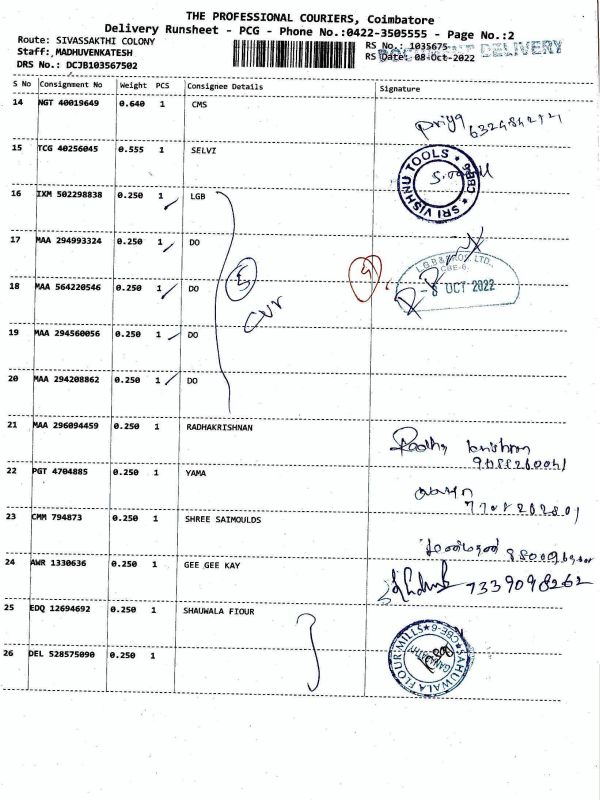 THE PROFESSIONAL COURIERS, Coimbatore
Delivery Runsheet - PCG - Phone No.:0422-3505555 - Page No.:2
Route: SIVASSAKTHI COLONY
Staff: MADHUVENKATESH
DRS No.: DCJB103567502
RS No.: 1035675
RS Date: 08-Oct-2022
DELIVERY
S No Consignment No Weight PCS Consignee Details Signature
14 NGT 40019649 0.640 1 CMS
Priya
15 TCG 40256045 0.555 1 SELVI
SRI VISHNU TOOLS ★ CBE-6 ★
16 IXM 502298838 0.250 1 LGB
17 MAA 294993324 0.250 1 DO
18 MAA 564220546 0.250 1 DO
L.G.B & BROS LTD.,
CBE-6.
-8 OCT 2022
19 MAA 294560056 0.250 1 DO
20 MAA 294208862 0.250 1 DO
21 MAA 296094459 0.250 1 RADHAKRISHNAN
Radha
22 PGT 4704885 0.250 1 YAMA
23 CMM 794873 0.250 1 SHREE SAIMOULDS
24 AWR 1330636 0.250 1 GEE GEE KAY
7339098262
25 EDQ 12694692 0.250 1 SHAUWALA FIOUR
26 DEL 528575090 0.250 1
SAHUWALA FLOUR MILLS ★ CBE-6 ★
GANAPATHY